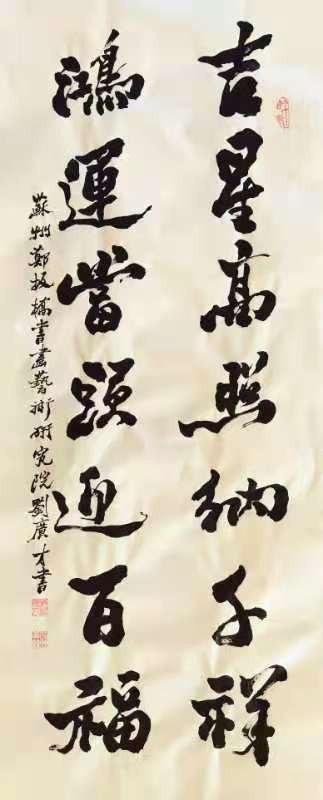 吉星高照納千祥
鴻運當頭迎百福
蘇州鄭板橋書畫藝術研究院劉廣才書